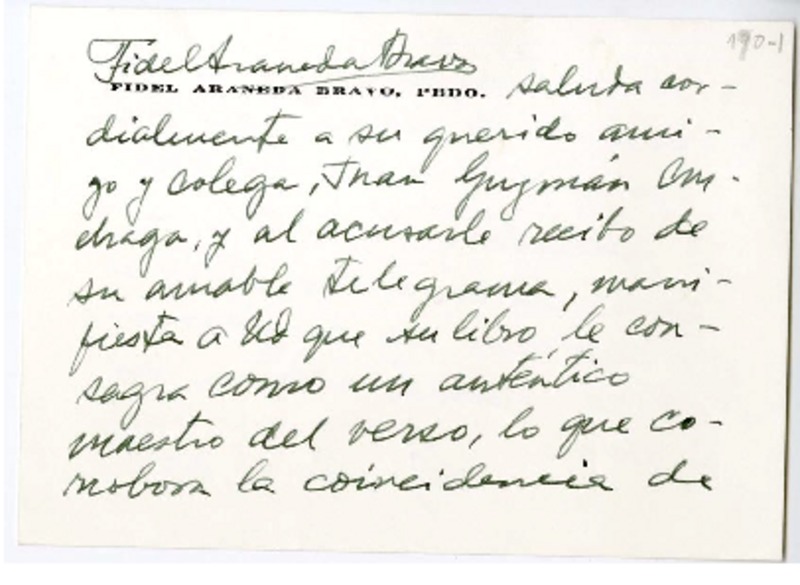 190-1
Fidel Araneda Bravo
FIDEL ARANEDA BRAVO, PBDO.
saluda cor-
dialmente a su querido ami-
go y colega, Juan Guzmán Cru-
chaga, y al acusarle recibo de
su amable telegrama, mani-
fiesta a Ud que su libro, le con-
sagra como un auténtico
maestro del verso, lo que co-
rrobora la coincidencia de